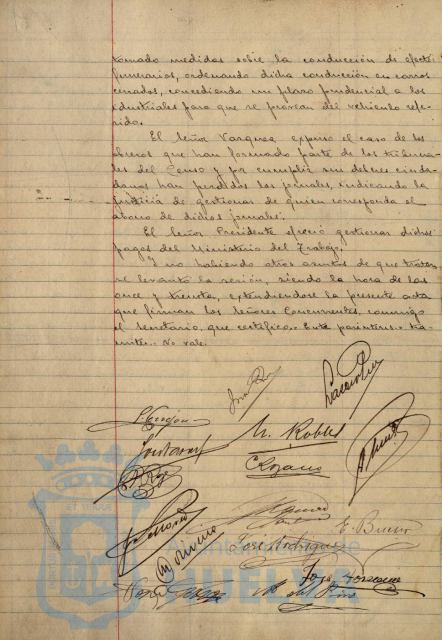 tomado medidas sobre la conducción de efectos
funerarios, ordenando dicha conducción en carros
cerrados, concediendo un plazo prudencial a los
industriales para que se provean del vehiculo refe-
rido.
El Señor Vazquez expuso el caso de los
obreros que han formado parte de los tribuna-
les del Censo y por cumplir sus deberes ciuda-
danos han perdido los jornales, indicando la
justicia de gestionar de quien corresponda el
abono de dichos jornales.
El Señor Presidente ofreció gestionar dichos
pagos del Ministerio del Trabajo.
Y no habiendo otros asuntos de que tratar
se levantó la sesión, siendo la hora de las
once y treinta, extendiendose la presente acta
que firman los Señores Concurrentes, conmigo
el Secretario, que certifico. Entre parentesis
No vale.
M. Robles
C Lozano
E. Bueno
José Rodriguez
José
M del Pino
ET TERRE
Ayuntamiento de
HUELVA